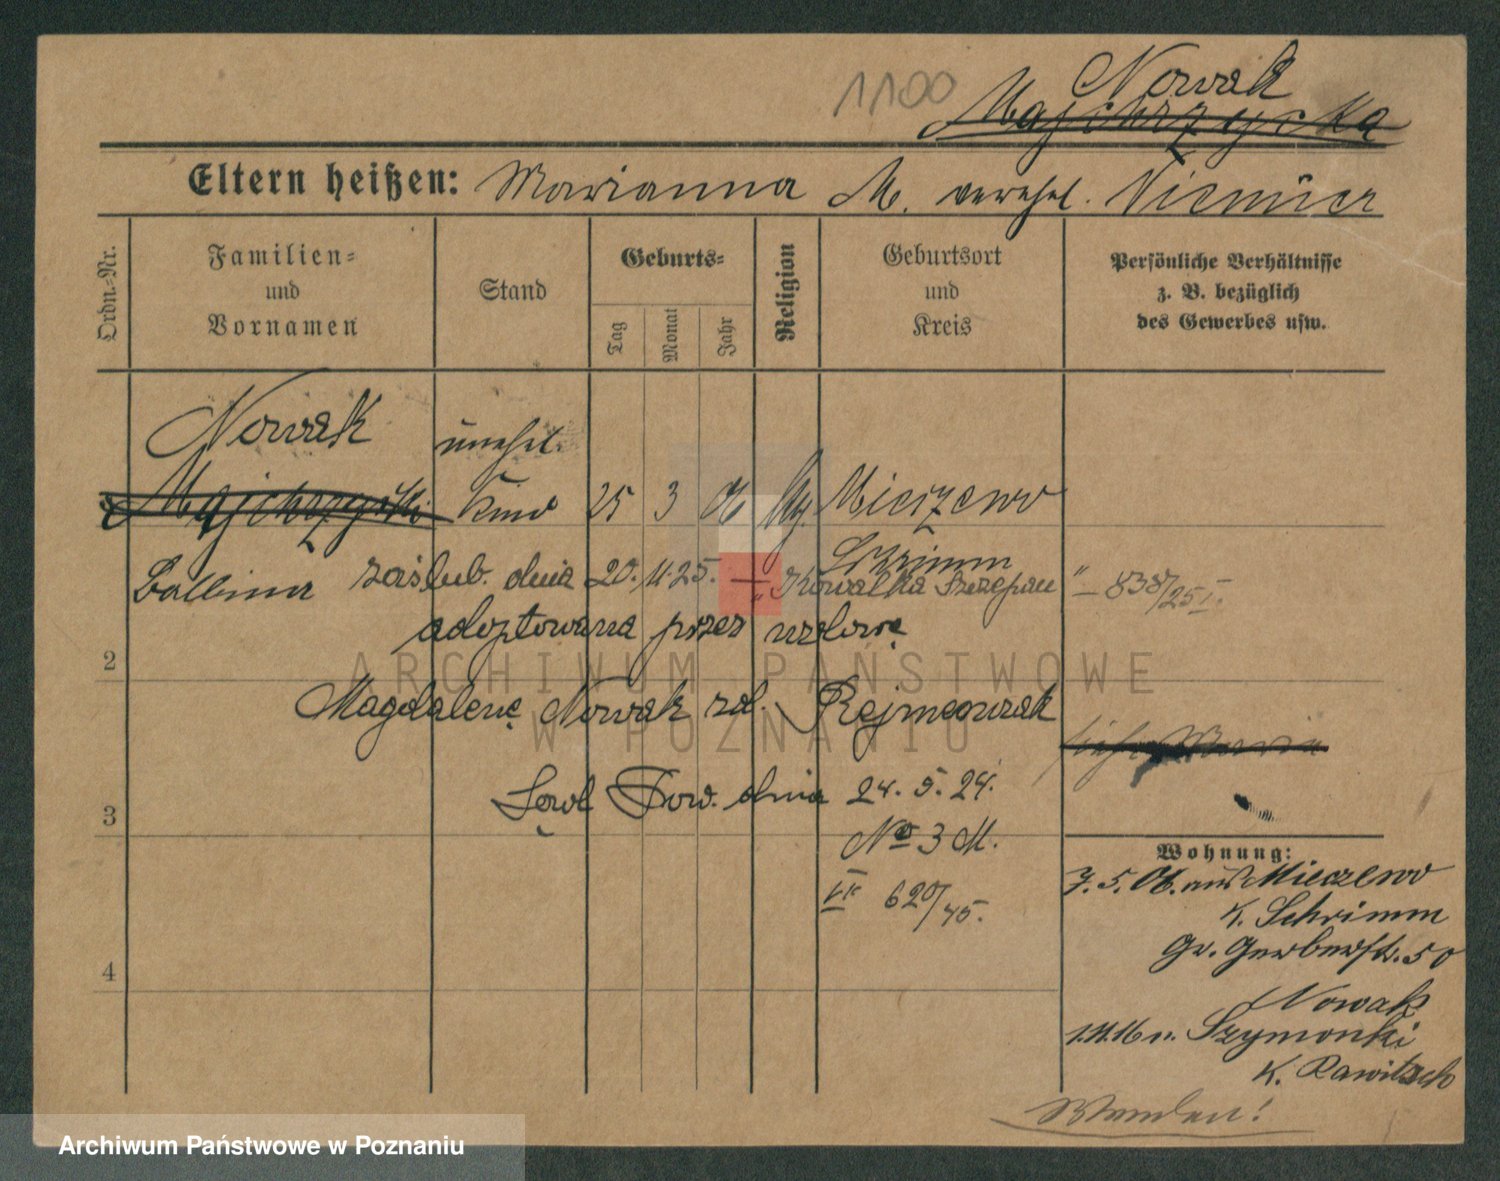 1100
Nowak
Majchrzycka
Eltern heißen: Marianna M. verehel. Niemier
Ordn.-Nr.
Familien-
und
Vornamen
Stand
Geburts-
Tag
Monat
Jahr
Religion
Geburtsort
und
Kreis
Persönliche Verhältnisse
z. B. bezüglich
des Gewerbes usw.
Nowak unehel.
Majchrzycki Kind 25 3 06 Mierzewo
Schrimm
Balbina zaślub. dnia 20. 11. 25. Kowalka Szczepan " — 838/25 I.
adoptowana przez wdowę
2
Magdalenę Nowak zd. Rejmeowzak
siehe Maria
Sąd Pow. dnia 24. 5. 24.
3
No 3 M.
620/45.
4
Wohnung:
7. 5. 06. aus Mieczewo
K. Schrimm
Gr. Gerberstr. 50
Nowak
1.11.16 n. Szymonki
K. Rawitsch
Wenden!
ARCHIWUM PAŃSTWOWE
W POZNANIU
Archiwum Państwowe w Poznaniu